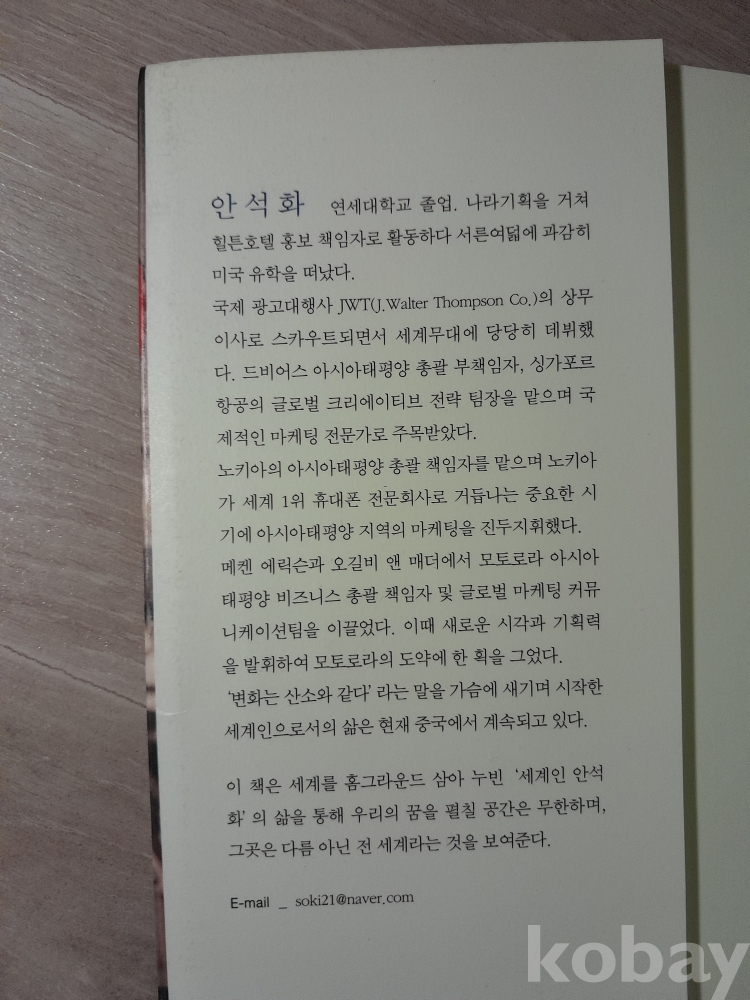 안석화 연세대학교 졸업. 나라기획을 거쳐
힐튼호텔 홍보 책임자로 활동하다 서른여덟에 과감히
미국 유학을 떠났다.
국제 광고대행사 JWT(J.Walter Thompson Co.)의 상무
이사로 스카우트되면서 세계무대에 당당히 데뷔했
다. 드비어스 아시아태평양 총괄 부책임자, 싱가포르
항공의 글로벌 크리에이티브 전략 팀장을 맡으며 국
제적인 마케팅 전문가로 주목받았다.
노키아의 아시아태평양 총괄 책임자를 맡으며 노키아
가 세계 1위 휴대폰 전문회사로 거듭나는 중요한 시
기에 아시아태평양 지역의 마케팅을 진두지휘했다.
메켄 에릭슨과 오길비 앤 매더에서 모토로라 아시아
태평양 비즈니스 총괄 책임자 및 글로벌 마케팅 커뮤
니케이션팀을 이끌었다. 이때 새로운 시각과 기획력
을 발휘하여 모토로라의 도약에 한 획을 그었다.
'변화는 산소와 같다' 라는 말을 가슴에 새기며 시작한
세계인으로서의 삶은 현재 중국에서 계속되고 있다.
이 책은 세계를 홈그라운드 삼아 누빈 '세계인 안석
화' 의 삶을 통해 우리의 꿈을 펼칠 공간은 무한하며,
그곳은 다름 아닌 전 세계라는 것을 보여준다.
E-mail _ soki21@naver.com
kobay